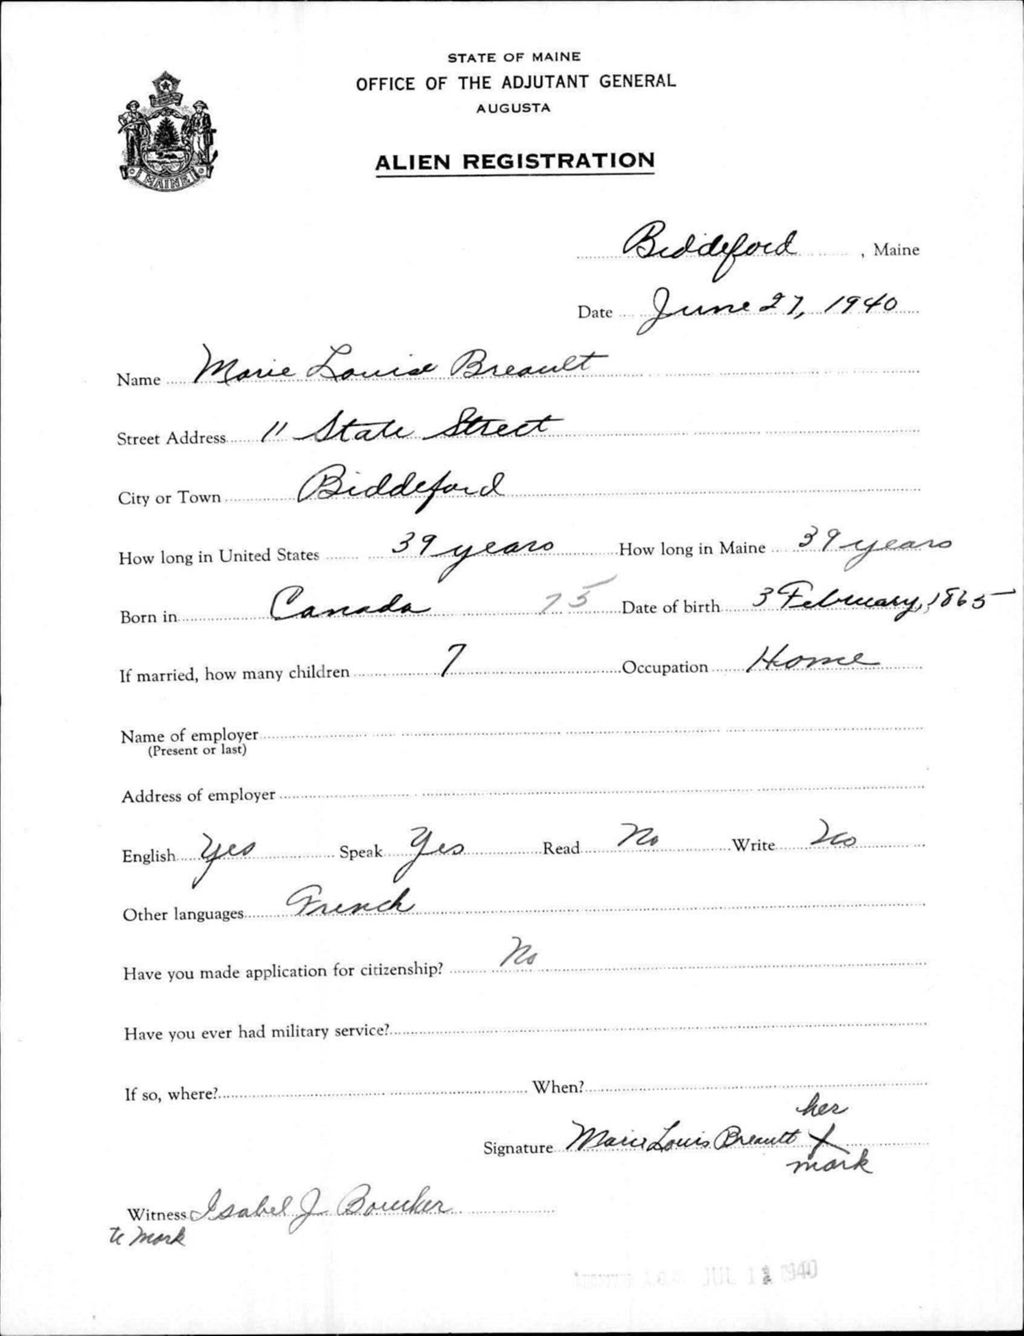 STATE OF MAINE
OFFICE OF THE ADJUTANT GENERAL
AUGUSTA
ALIEN REGISTRATION
MAINE
Biddeford, Maine
Date June 27, 1940
Name Marie Louise Breault
Street Address 11 State Street
City or Town Biddeford
How long in United States 39 years How long in Maine 39 years
Born in Canada 75 Date of birth 3 February, 1865
If married, how many children 7 Occupation Home
Name of employer
(Present or last)
Address of employer
English Yes Speak Yes Read No Write No
Other languages French
Have you made application for citizenship? No
Have you ever had military service?
If so, where? When?
her
Signature Marie Louis Breault X
mark
Witness Isabel J. Boucher
to Mark
JUL 1 1940